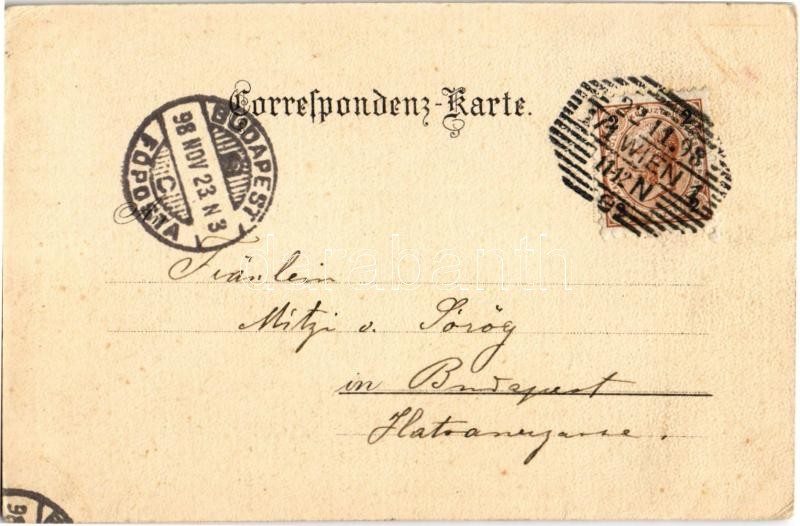 Correspondenz-Karte.
BUDAPEST
98 NOV 23 N 3
C
FŐPOSTA
23.11.98
WIEN 1
11-12 N
An
Fräulein
Mitzi v. Görög
in Budapest
Hatvanergasse.
darabanth